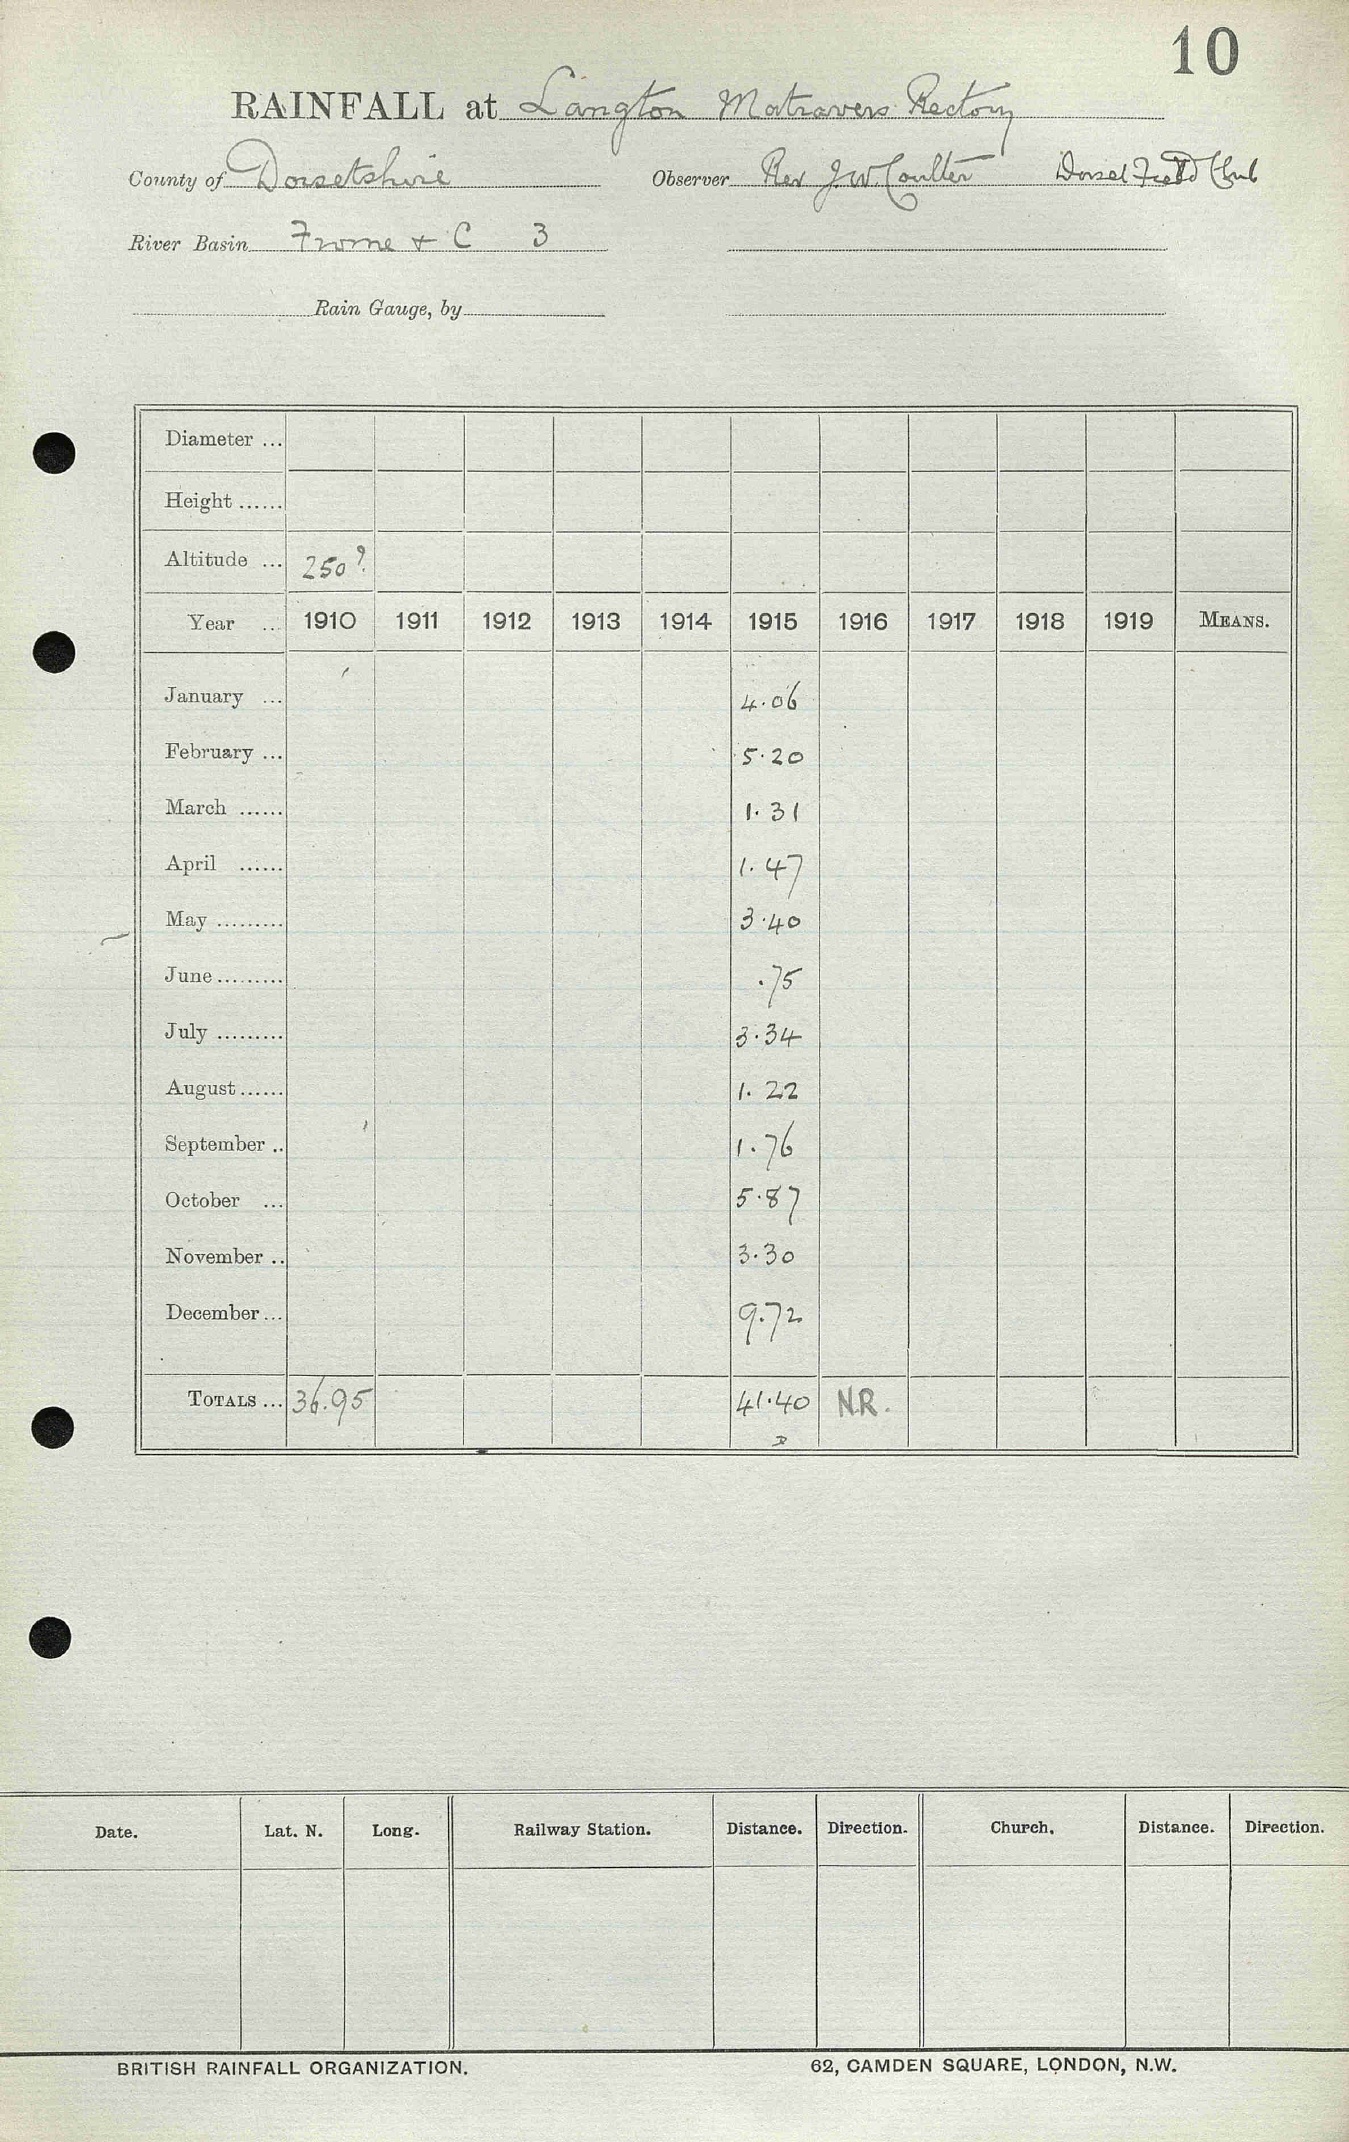 10
RAINFALL at Langton Matravers Rectory
County of Dorsetshire Observer Rev J.W. Coulter Dorset Field Club
River Basin Frome & C 3
Rain Gauge, by
Diameter ...
Height ......
Altitude ... 250?
Year ... 1910 1911 1912 1913 1914 1915 1916 1917 1918 1919 MEANS.
January ... 4.06
February ... 5.20
March ...... 1.31
April ...... 1.47
May ......... 3.40
June ......... .75
July ......... 3.34
August ...... 1.22
September .. 1.76
October ... 5.87
November .. 3.30
December ... 9.72
TOTALS ... 36.95 41.40 N.R.
Date. Lat. N. Long. Railway Station. Distance. Direction. Church. Distance. Direction.
BRITISH RAINFALL ORGANIZATION. 62, CAMDEN SQUARE, LONDON, N.W.